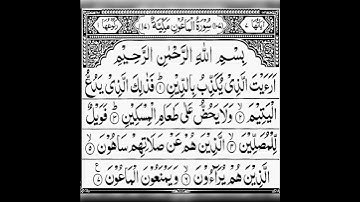 اٰيَاتُهَا ٧ (١٠٧) سُوْرَةُ الْمَاعُوْنِ مَكِّيَّةٌ (١٧) رُكُوْعُهَا ١
بِسْمِ اللّٰهِ الرَّحْمٰنِ الرَّحِيْمِ
اَرَءَيْتَ الَّذِيْ يُكَذِّبُ بِالدِّيْنِ ۝١ فَذٰلِكَ الَّذِيْ يَدُعُّ
الْيَتِيْمَ ۝٢ وَلَا يَحُضُّ عَلٰى طَعَامِ الْمِسْكِيْنِ ۝٣ فَوَيْلٌ
لِّلْمُصَلِّيْنَ ۝٤ الَّذِيْنَ هُمْ عَنْ صَلَاتِهِمْ سَاهُوْنَ ۝٥
الَّذِيْنَ هُمْ يُرَآءُوْنَ ۝٦ وَيَمْنَعُوْنَ الْمَاعُوْنَ ۝٧